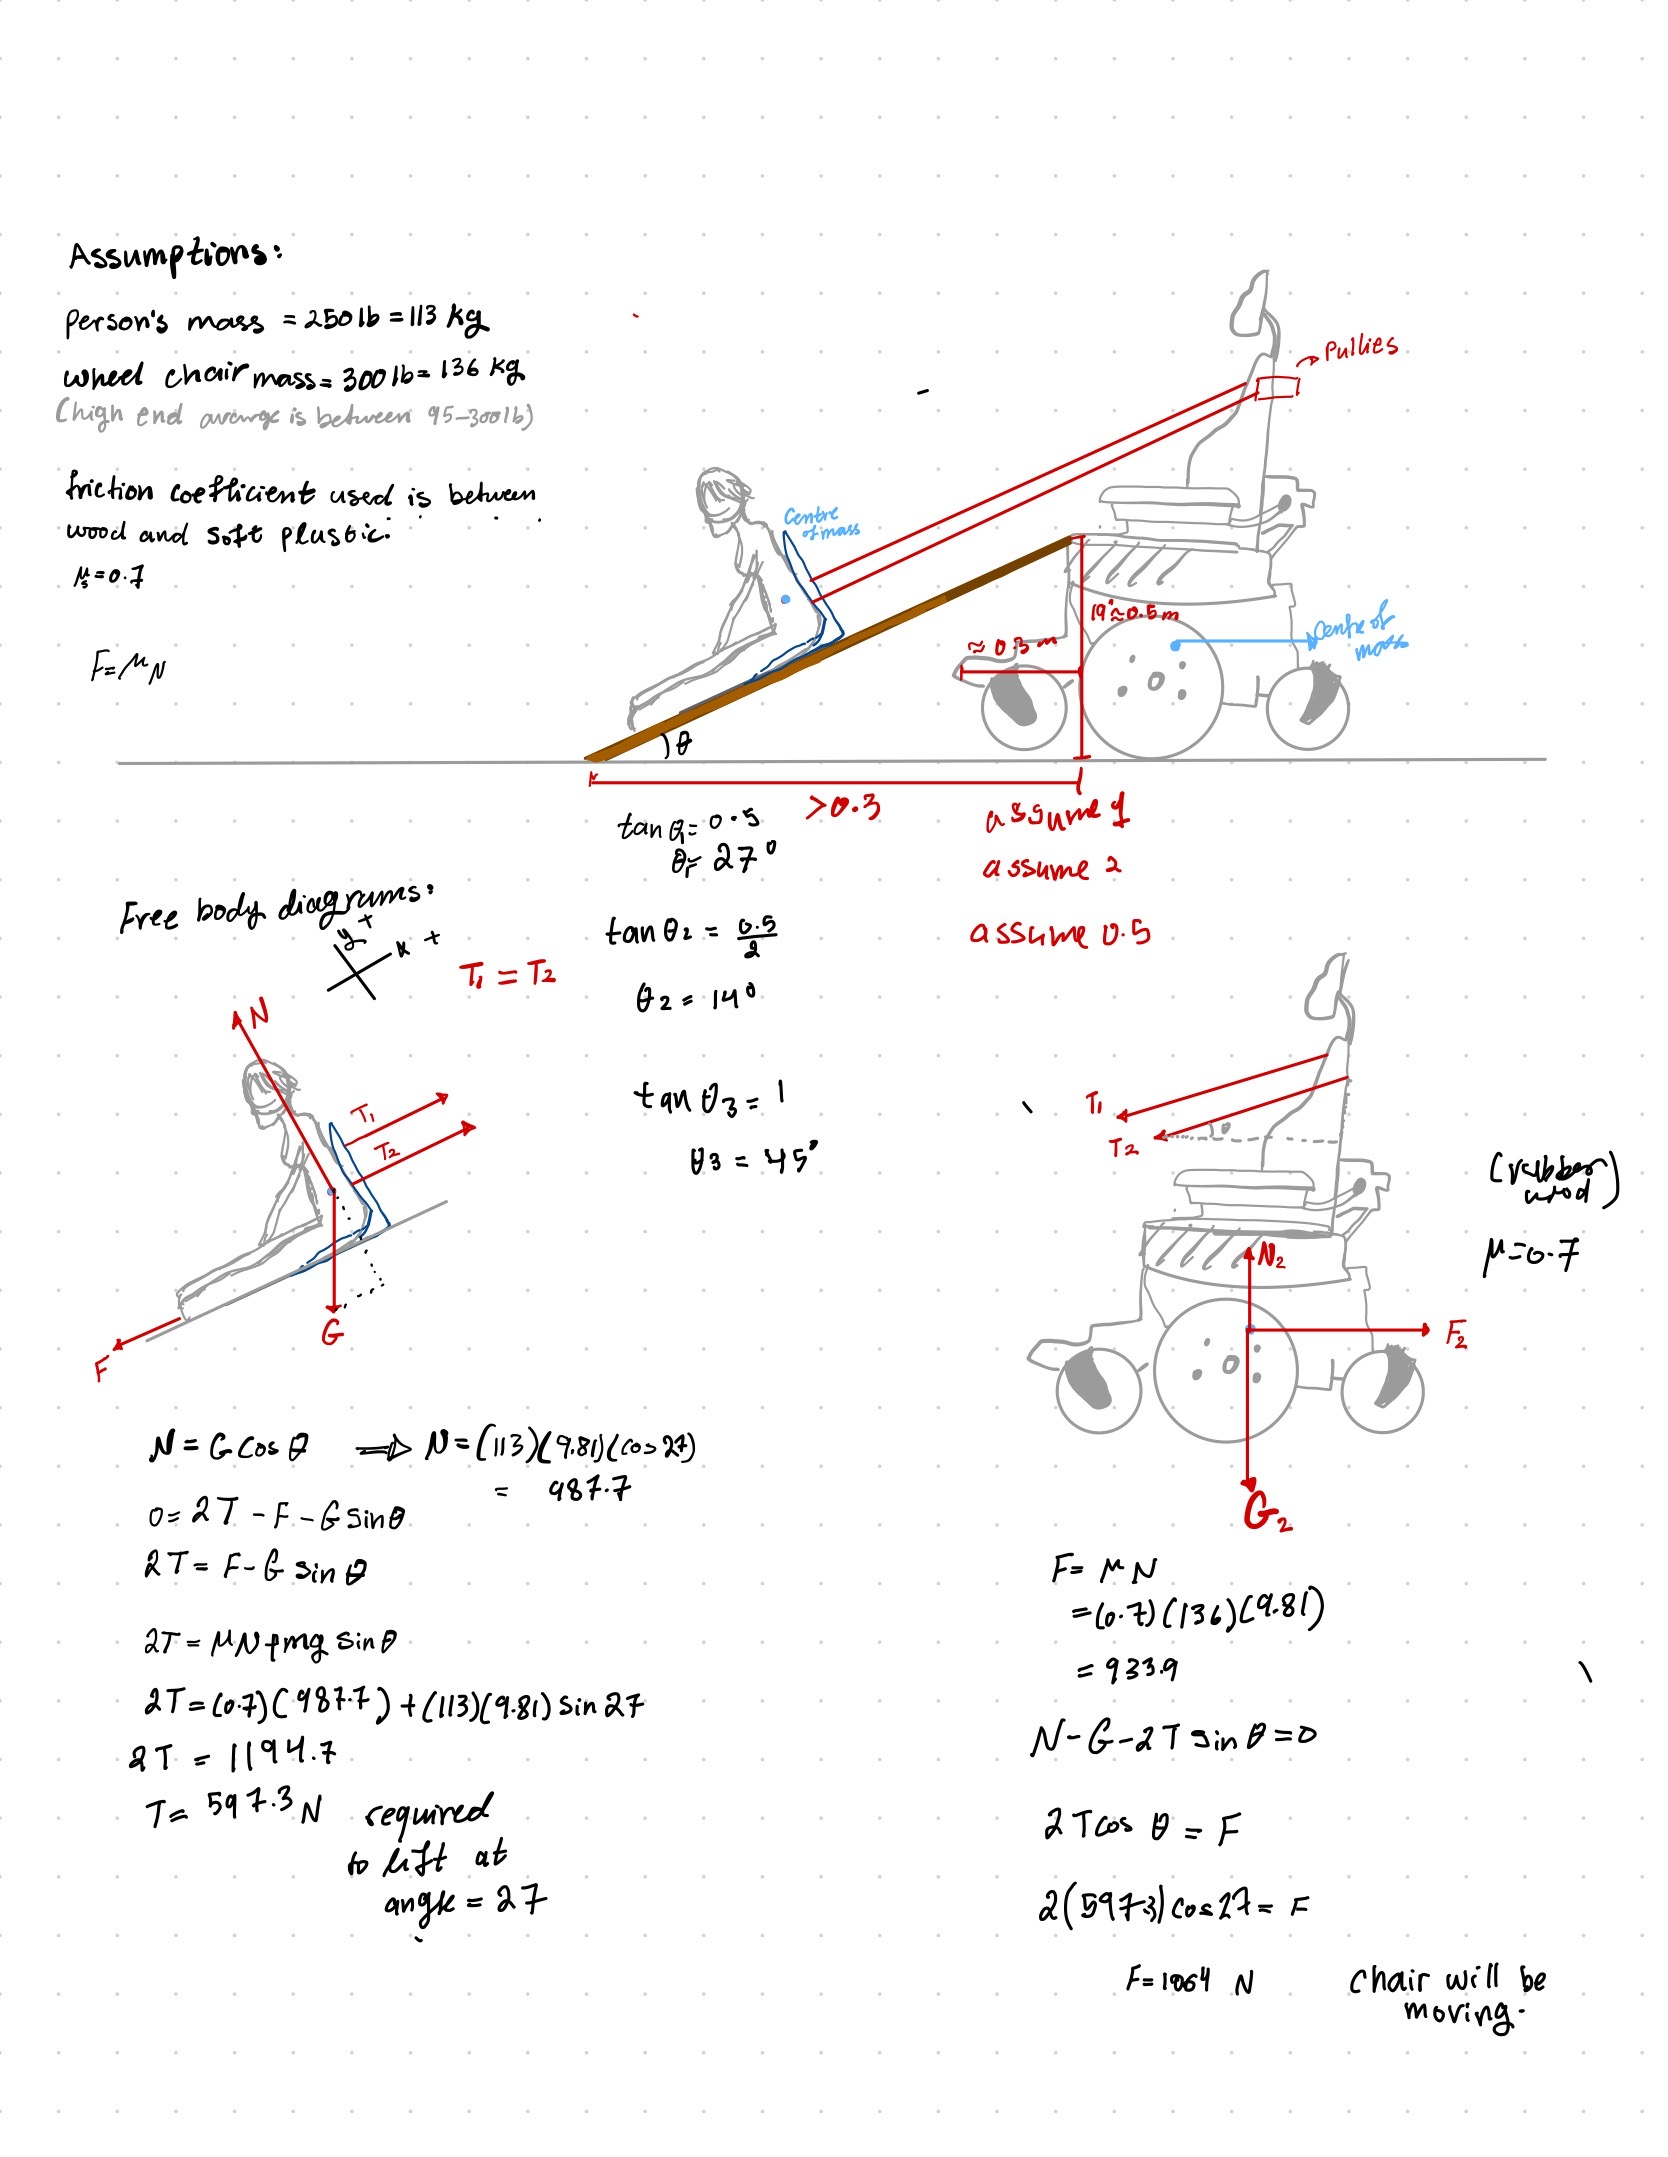 Assumptions:
Person's mass = 250 lb = 113 kg
wheel chair mass = 300 lb = 136 kg
(high end average is between 95-300lb)
friction coefficient used is between
wood and soft plastic.
μs = 0.7
F = μN
Pullies
Centre
of mass
19" ≈ 0.5 m
≈ 0.3 m
Centre of
mass
θ
>0.3
assume 1
assume 2
assume 0.5
tan θ1 = 0.5
θ1 = 27°
tan θ2 = 0.5/2
θ2 = 14°
tan θ3 = 1
θ3 = 45°
Free body diagrams:
y +
x +
T1 = T2
N
T1
T2
G
F
T1
T2
θ
N2
F2
G2
(rubber
wood)
μ = 0.7
N = G cos θ ⟹ N = (113)(9.81)(cos 27)
= 987.7
0 = 2T - F - G sin θ
2T = F - G sin θ
2T = μN + mg sin θ
2T = (0.7)(987.7) + (113)(9.81) sin 27
2T = 1194.7
T = 597.3 N required
to lift at
angle = 27
F = μN
= (0.7)(136)(9.81)
= 933.9
N - G - 2T sin θ = 0
2T cos θ = F
2(597.3) cos 27 = F
F = 1064 N
Chair will be
moving.